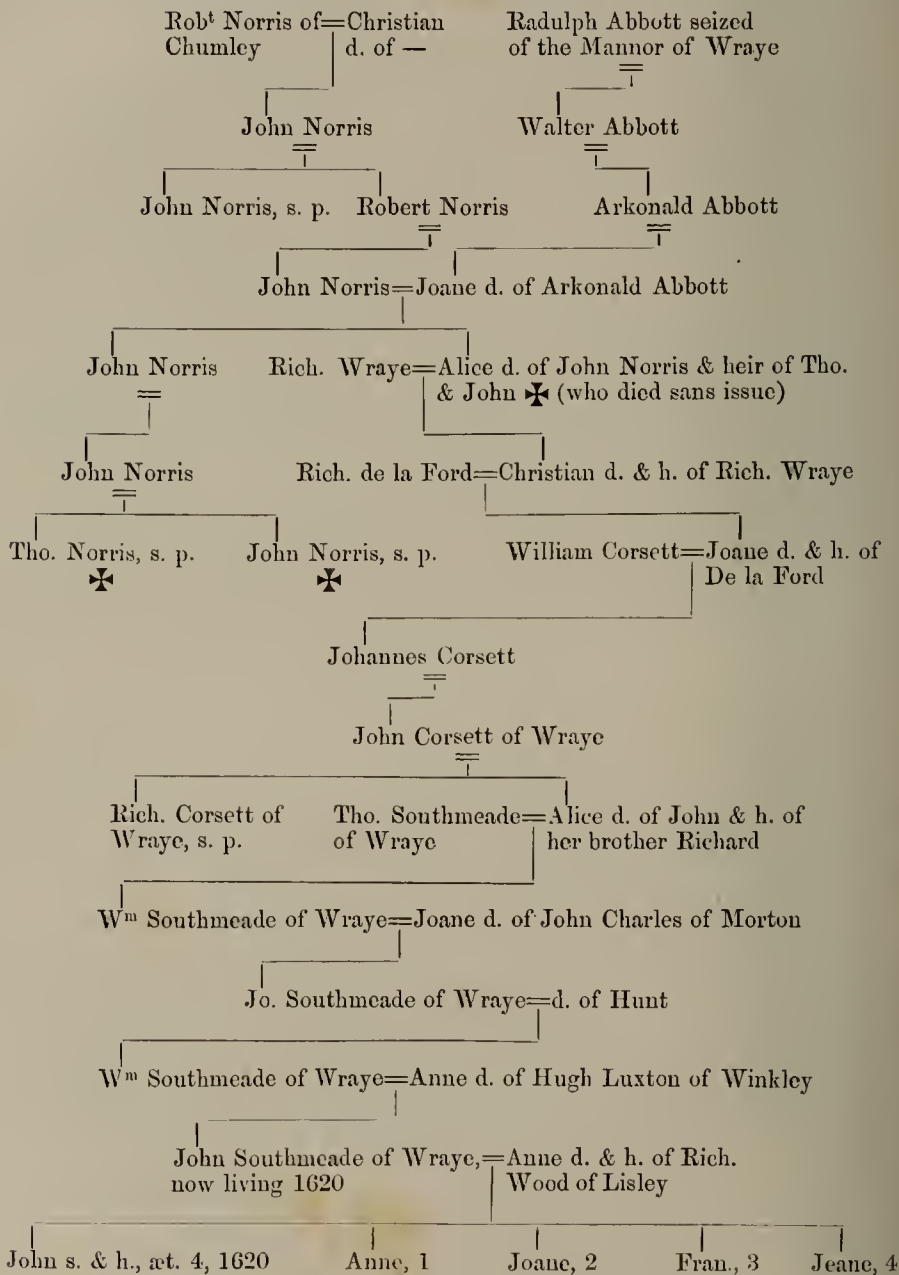 Robt Norris of=Christian Radulph Abbott seized
Chumley d. of — of the Mannor of Wraye
John Norris Walter Abbott
John Norris, s. p. Robert Norris Arkonald Abbott
John Norris=Joane d. of Arkonald Abbott
John Norris Rich. Wraye=Alice d. of John Norris & heir of Tho.
& John ✠ (who died sans issue)
John Norris Rich. de la Ford=Christian d. & h. of Rich. Wraye
Tho. Norris, s. p. John Norris, s. p. William Corsett=Joane d. & h. of
✠ ✠ De la Ford
Johannes Corsett
John Corsett of Wraye
Rich. Corsett of Tho. Southmeade=Alice d. of John & h. of
Wraye, s. p. of Wraye her brother Richard
Wm Southmeade of Wraye=Joane d. of John Charles of Morton
Jo. Southmeade of Wraye=d. of Hunt
Wm Southmeade of Wraye=Anne d. of Hugh Luxton of Winkley
John Southmeade of Wraye,=Anne d. & h. of Rich.
now living 1620 Wood of Lisley
John s. & h., æt. 4, 1620 Anne, 1 Joane, 2 Fran., 3 Jeane, 4